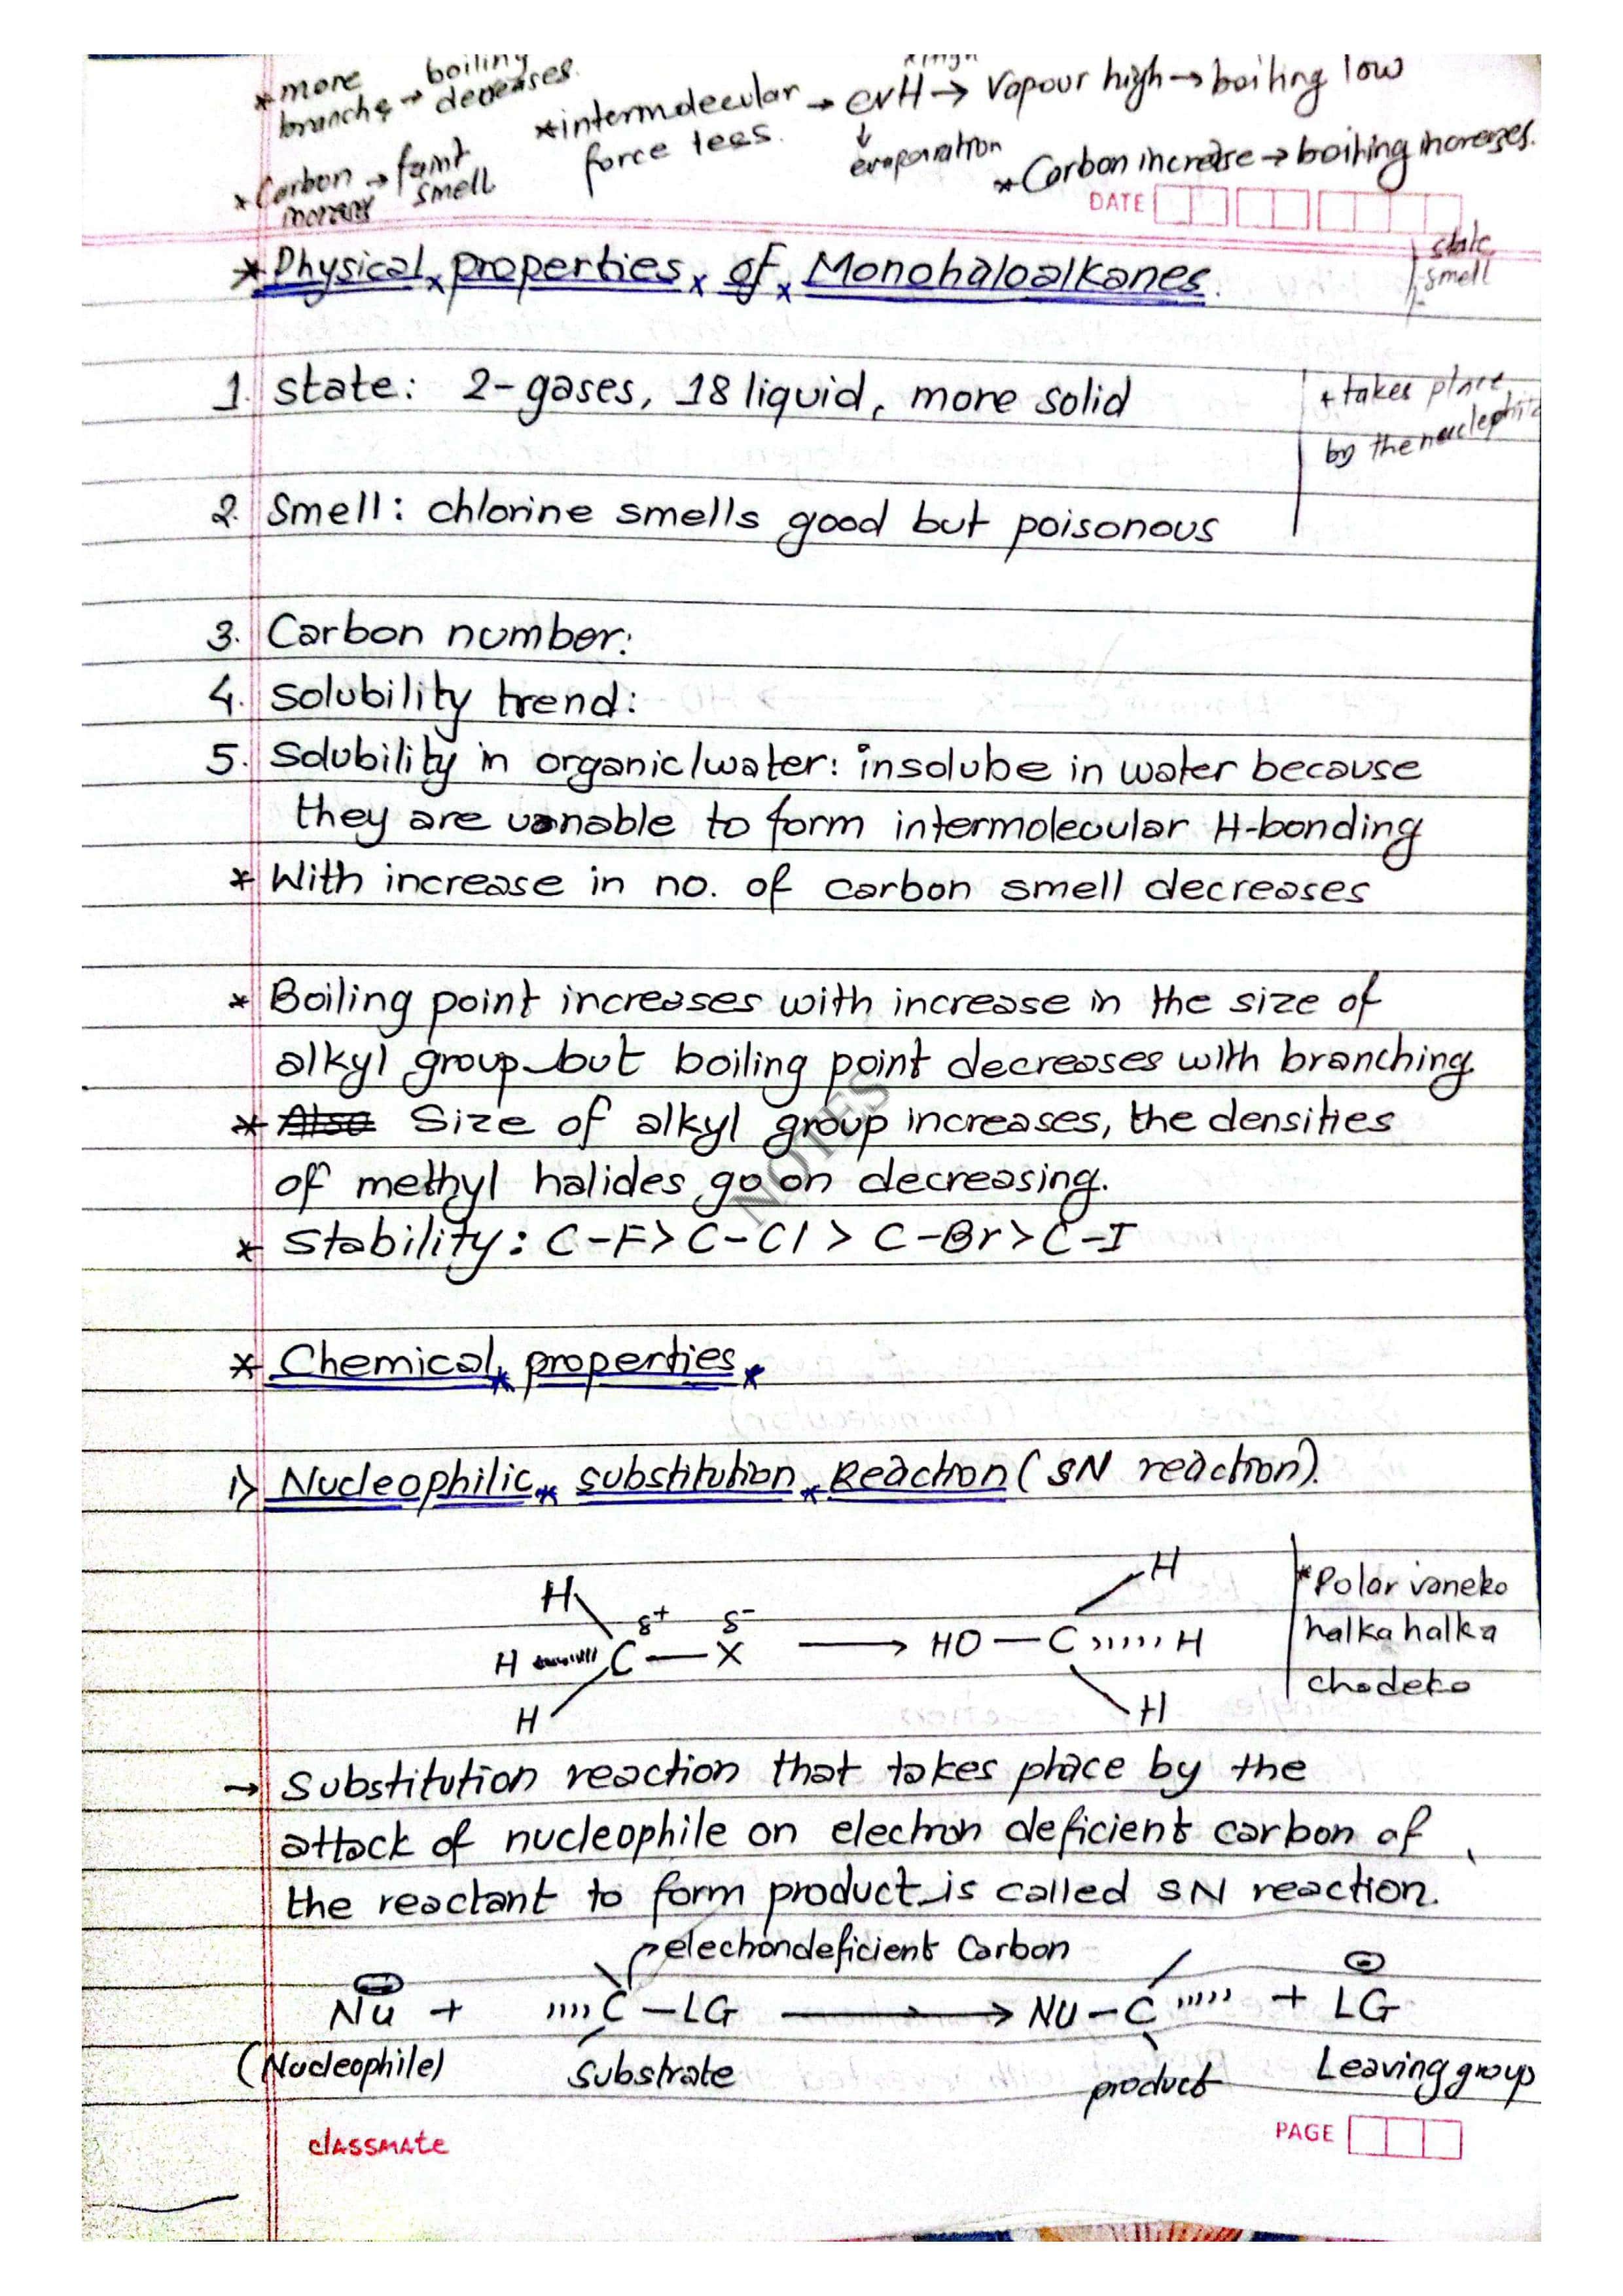 *more branche → boiling decreases.
*intermolecular force less. → evH → Vapour high → boiling low
↓
evaporation
*Carbon → faint smell
*Carbon increase → boiting increases.
DATE
state
smell
*Physical properties of Monohaloalkanes.
1. state: 2-gases, 18 liquid, more solid
* takes place
by the nucleophile
2. Smell: chlorine smells good but poisonous
3. Carbon number:
4. Solubility trend:
5. Solubility in organic/water: insolube in water because
they are unable to form intermolecular H-bonding
* With increase in no. of carbon smell decreases
* Boiling point increases with increase in the size of
alkyl group but boiling point decreases with branching.
* Also Size of alkyl group increases, the densities
of methyl halides go on decreasing.
NOTES
* Stability: C-F > C-Cl > C-Br > C-I
* Chemical properties
1> Nucleophilic substitution Reaction (SN reaction).
H H
H C δ+ — X δ- → HO — C H
H H
*Polar vaneko
halka halka
chodeko
→ Substitution reaction that takes place by the
attack of nucleophile on electron deficient carbon of
the reactant to form product is called SN reaction.
electrondeficient Carbon
Nu⊖ + C - LG → NU - C + LG⊖
(Nucleophile) Substrate product Leaving group
classmate
PAGE